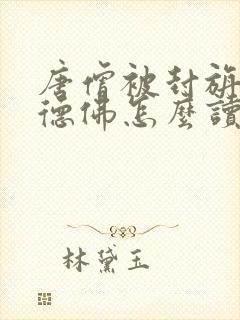 唐僧被封旃
德佛怎麼讀
林黛玉